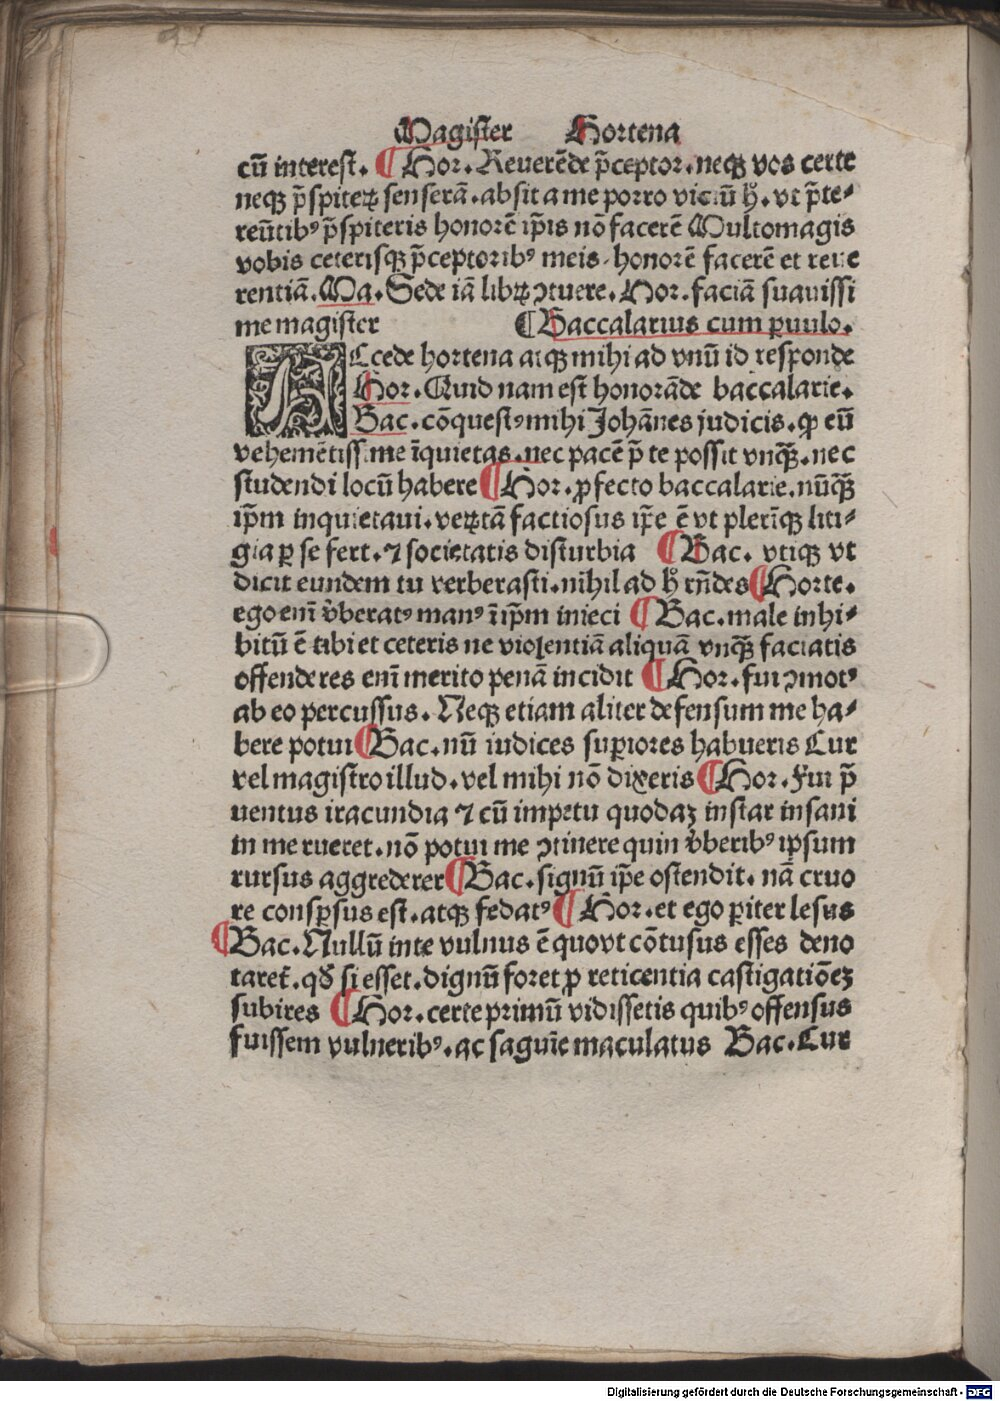 Magister Hortena
cū interest. ¶ Hor. Reuerēde p̄ceptor. neqꝫ vos certe
neqꝫ p̄spiteꝝ senserā. absit a me porro viciū ꝧ. vt p̄te-
reūtibꝰ p̄spiteris honorē ip̄is nō facerē Multomagis
vobis ceterisqꝫ p̄ceptoribꝰ meis honorē facerē et reue
rentiā. Ma. Sede iā libꝝ ꝯtuere. Hor. faciā suauissi
me magister ¶ Baccalarius cum puulo.
ACcede hortena atqꝫ mihi ad vnū id responde
Hor. Quid nam est honorāde baccalarie.
Bac. cōquestꝰ mihi Johānes judicis. ꝙ eū
vehemētissime īquietas. nec pacē p̄ te possit vnqꝫ̄. nec
studendi locū habere ¶ Hor. ꝓfecto baccalarie. nūqꝫ̄
ip̄m inquietaui. veꝝtā factiosus ip̄e ē vt plerīqꝫ liti-
gia ꝑ se fert. ⁊ societatis disturbia ¶ Bac. vtiqꝫ vt
dicit eundem tu verberasti. nihil ad ꝧ rn̄des ¶ Horte.
ego enī v̓beratꝰ manꝰ ī ip̄m inieci ¶ Bac. male inhi-
bitū ē tibi et ceteris ne violentiā aliquā vnqꝫ̄ faciatis
offenderes enī merito penā incidit ¶ Hor. fui ꝯmotꝰ
ab eo percussus. Neqꝫ etiam aliter defensum me ha-
bere potui ¶ Bac. nū iudices supiores habueris Cur
vel magistro illud. vel mihi nō dixeris ¶ Hor. Fui p̄
uentus iracundia ⁊ cū impetu quodaꝫ instar insani
in me rueret. nō potui me ꝯtinere quin v̓beribꝰ ipsum
rursus aggrederer ¶ Bac. signū ip̄e ostendit. nā cruo
re conspsus est. atqꝫ fedatꝰ ¶ Hor. et ego piter lesus
¶ Bac. Nullū in te vulnus ē quo vt cōtusus esses deno
taret̄. qd̓ si esset. dignū foret ꝓ reticentia castigatiōeꝫ
subires ¶ Hor. certe primū vidissetis quibꝰ offensus
fuissem vulneribꝰ. ac saguīe maculatus Bac. Cur
Digitalisierung gefördert durch die Deutsche Forschungsgemeinschaft - DFG